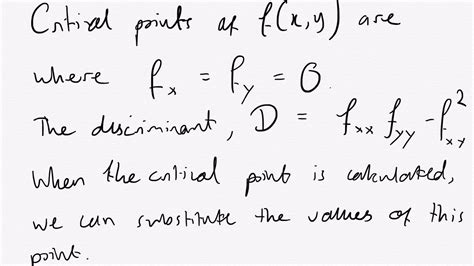 Critical points of f(x,y) are
where fₓ = f_y = 0.
The discriminant, D = fₓₓ f_yy - f²_xy
When the critical point is calculated,
we can substitute the values of this
point.